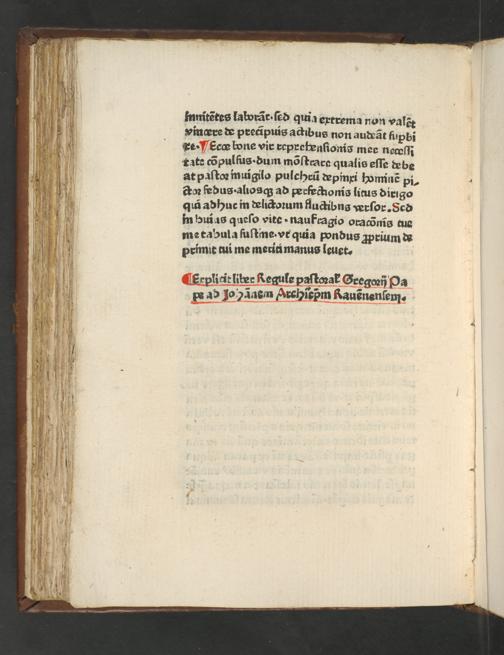 inuitētes laborāt·sed quia extrema non valēt
vincere de precipuis actibus non audeāt supbi
re·¶Ecce bone vir reprehensionis mee necessi
tate cōpulsus·dum mōstrare qualis esse debe
at pastor inuigilo pulchrū depinxi hominē pi-
ctor fedus·aliosqꝫ ad perfectionis litus dirigo
qui adhuc in delictorum fluctibus versor.Sed
in huius queso vite·naufragio oracōnis tue
me tabula sustine·vt quia pondus ꝓprium de
primit tui me meriti manus leuet.
¶Explicit liber Regule pastoral' Gregorij Pa
pe ad Johānem Archiepm Rauēnensem.